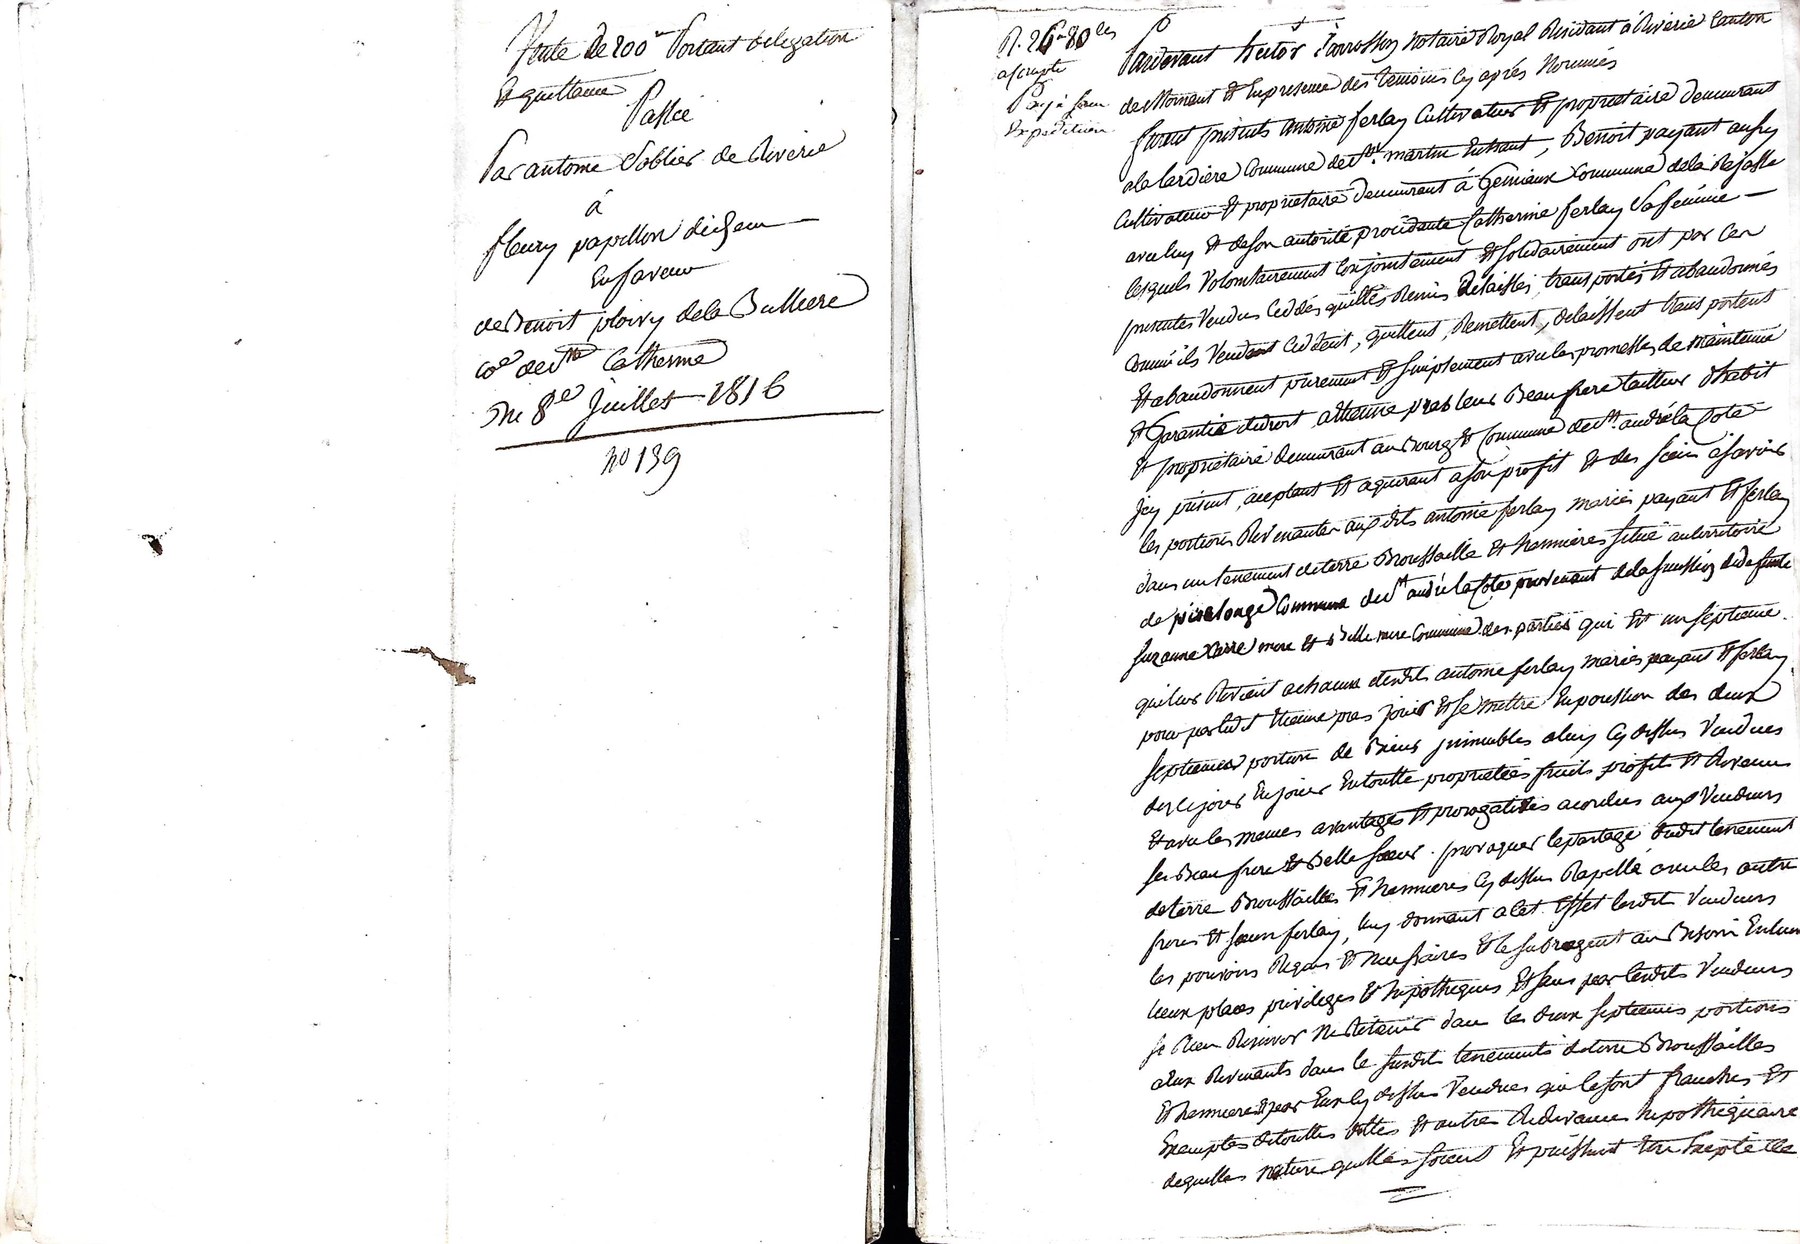 Vente de 200 fr Portant delegation
et quittance
Passée
Par antoine Soblier de Riverie
à
fleury papillon dichem
En faveur
de Benoit ploivy dela Bulliere
coe de ste Catherine
Du 8e Juillet 1816
no 139
R. 26 fr 80 ces
acompte
Payé
Expedition
Pardevant hector Notaire Royal Residant à Riverie Canton
de Mornant et En presence des temoins Cy après Nommés
furent presents antoine ferlay Cultivateur et proprietaire demeurant
ala lardiere Commune de st martin Enhaut, Benoit payant aussy
Cultivateur et proprietaire demeurant à Gemieux Commune dela Rajasse
avec luy et de son autorité procédante Catherine ferlay Sa femme
lesquels Volontairement Conjointement et solidairement ont par Ces
presentes Vendus Ceddés quittés Remis delaissés, transportés et abandonnés
comme ils Vendent Ceddent, quittent, Remettent, delaissent transportent
et abandonnent purement et simplement avec les promesses de maintenue
et Garantie de droit a Etienne pres leur Beaufrere tailleur d'habit
et proprietaire demeurant au Bourg et Commune de st. andré la Cote
Jcy present, aceptant et aquerant a son profit et des siens asavoir
les portions Revenantes aux dits antoine ferlay mariés payant et ferlay
dans un tenement de terre Broussaille et hermieres situé au territoire
de pierelonge Commune de st andré la Cote provenant dela sucession de defunte
Suzanne mere et Belle mere Commune des parties qui Et un septieme
qui leur Revient a chacun desdits antoine ferlay mariés payant et ferlay
pour par ledit Etienne pres jouir et se mettre En possession des deux
septiemes portion de Biens jmmeubles aluy Cy dessus Vendues
des ce jour En jouir En toutte proprietés fruits profits et Revenus
et avec les memes avantages et prerogatives acordées aux Vendeurs
ses Beau frere et Belle soeur. provoquer le partage dudit tenement
de terre Broussailles et hermieres Cy dessus Rapellé avec les autre
freres et soeurs ferlay, luy donnant a Cet Effet lesdits Vendeurs
les pouvoirs Requis et necessaires et le subrogent au Besoin En leur
lieux places privileges et hipotheques et sans par lesdits Vendeurs
se Rien Reserver ne Retenir dans les deux septiemes portions
aEux Revenants dans le susdit tenements de terre Broussailles
et hermieres par Eux Cy dessus Vendues qui le sont franches et
Exemptes de touttes dettes et autres Redevances hipothequaire
dequelles nature quelles soient et puissent Etre Excepté les